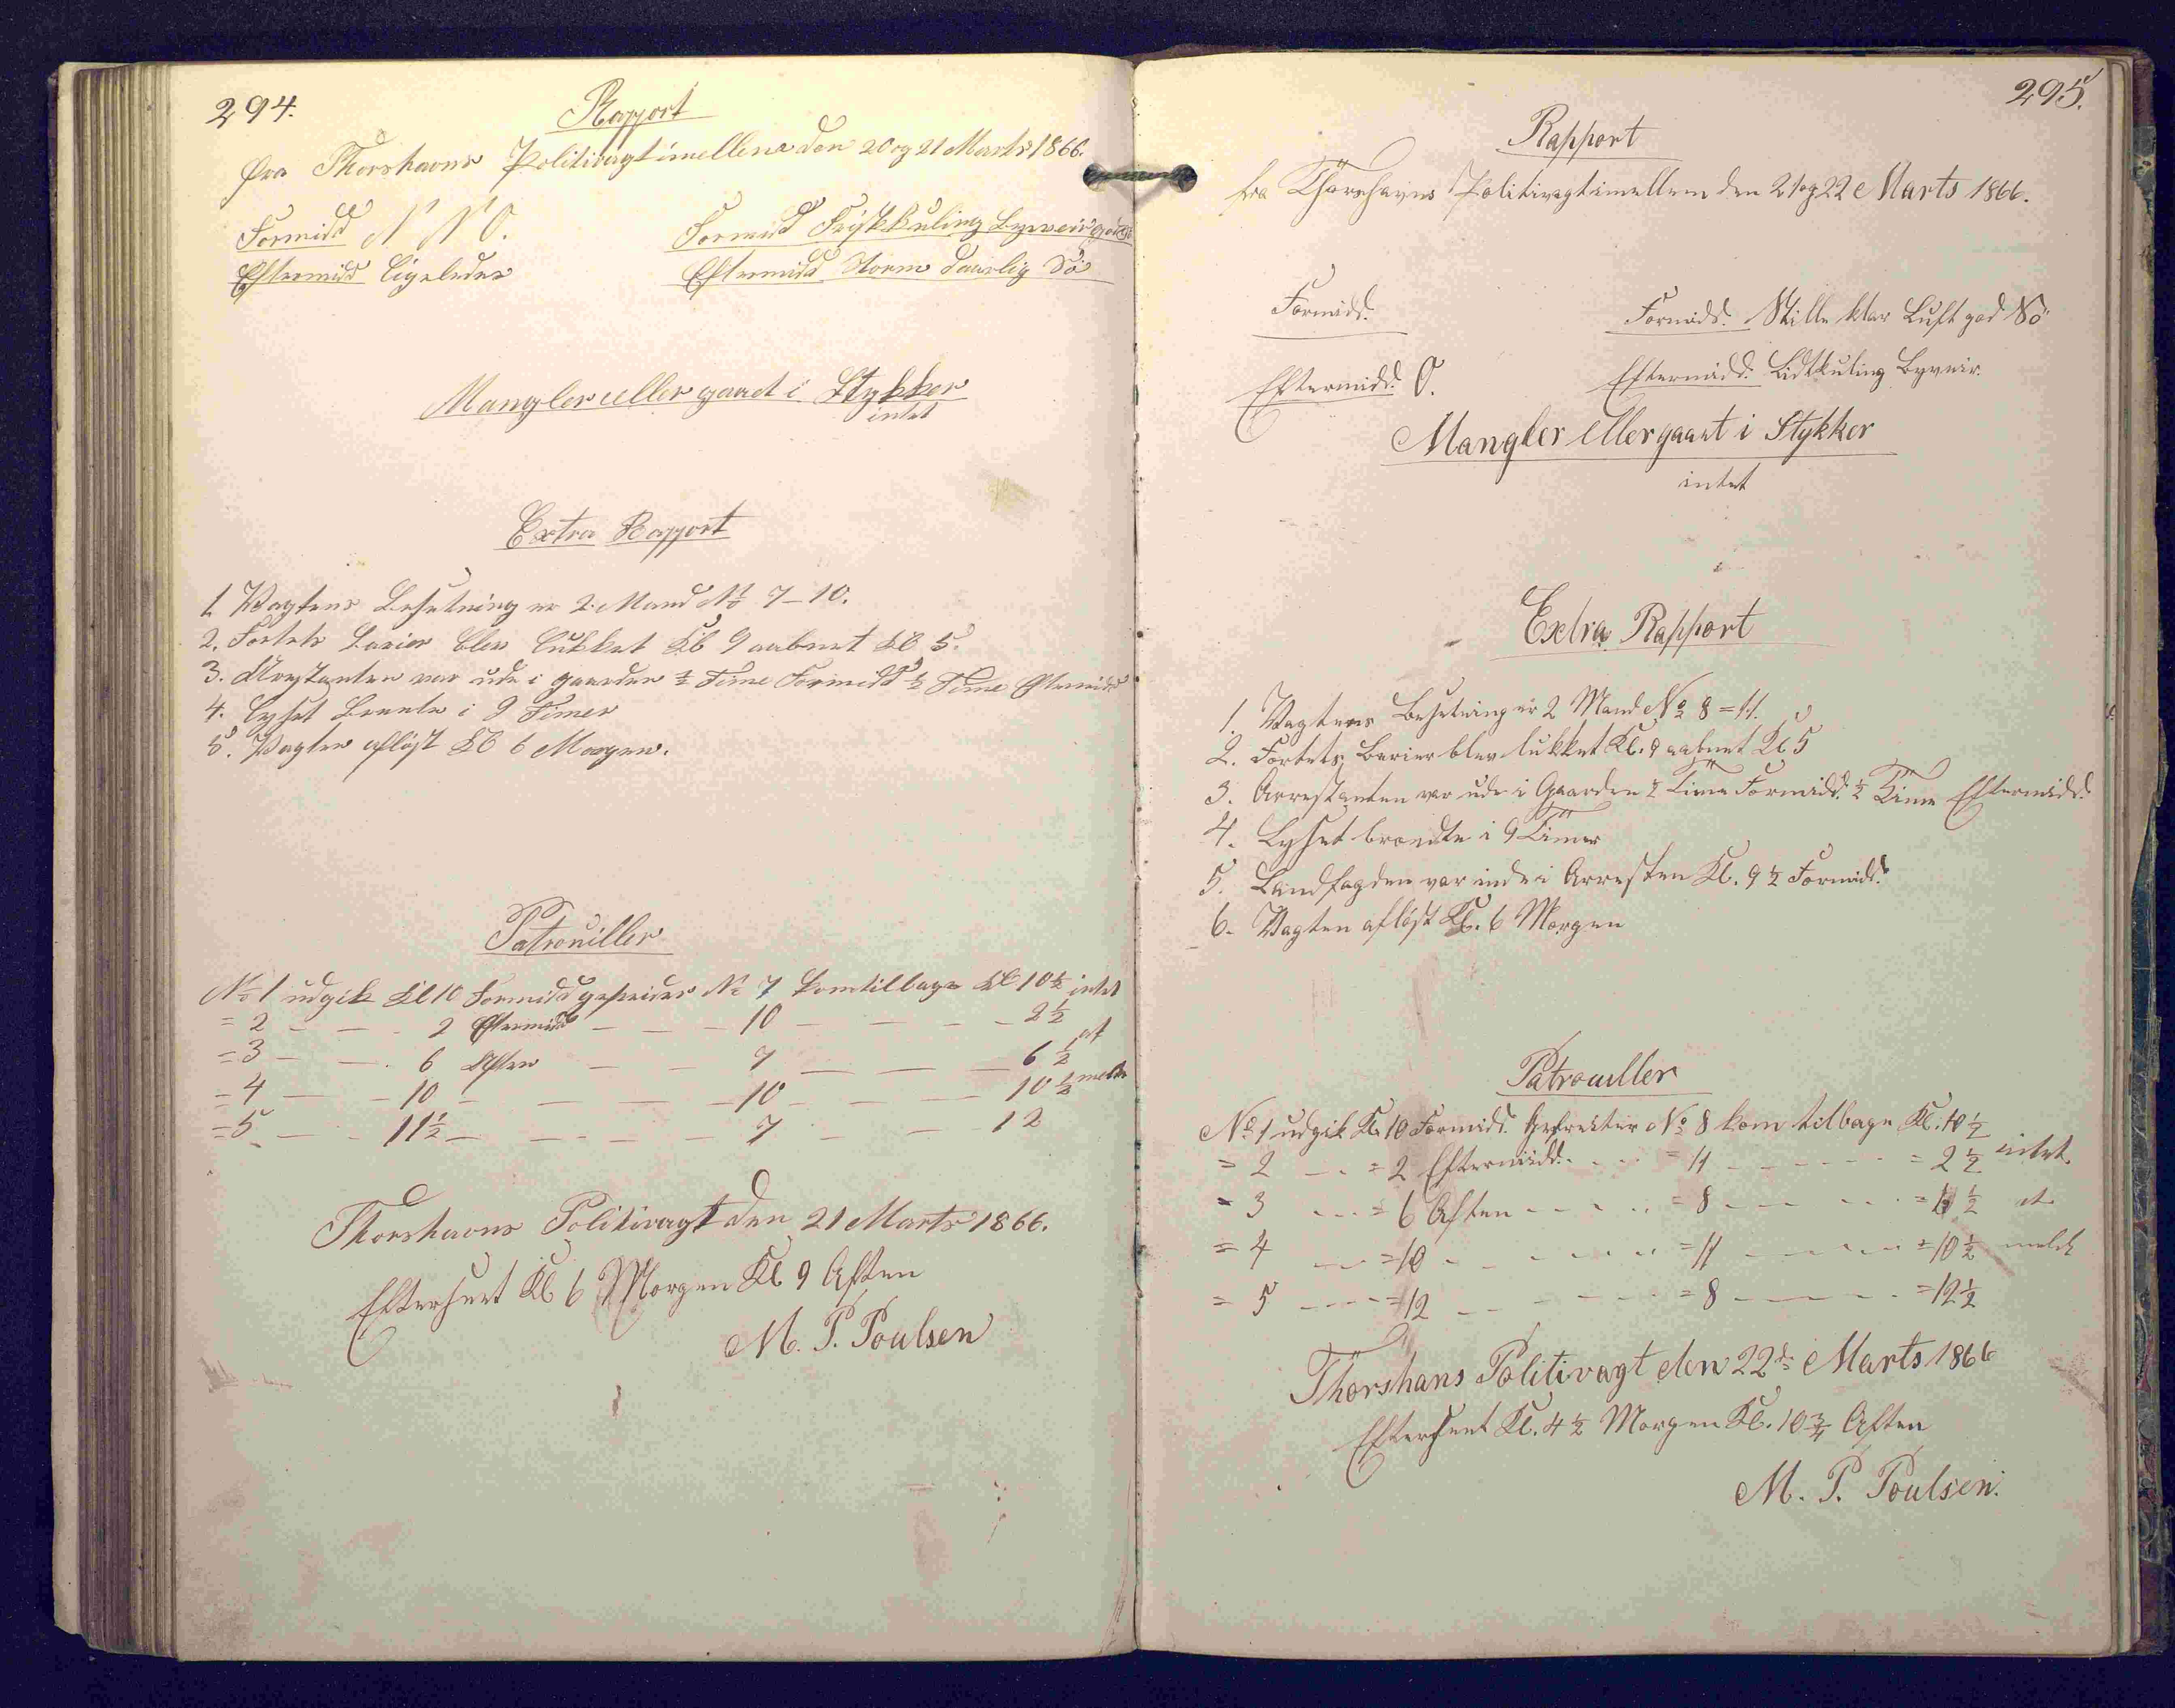 294.
Rapport
fra Thorshavns Politivagt imellem den 20 og 21 Marts 1866.
Formidd N N O.
Formidd Friskkuling Byveir god Sö
Eftermidd ligeledes
Eftermidd Storm daarlig Sö
Mangler eller gaaet i Stykker
intet
Extra Rapport
1. Vagtens Besetning er 2 Mand No 7–10.
2. Fortets Barier blev lukket Kl 9 aabnet Kl 5.
3. Arrestanten var ude i gaarden ½ Time Formidd ½ Time Eftermidd
4. Lyset brente i 9 Timer
5. Vagten aflöst Kl 6 Morgen.
Patrouiller
No 1 udgik Kl 10 Formidd gefreider No 7 kom tilbage Kl 10½ intet
= 2 — — 2 Eftermidd — — — 10 — — — 2½
= 3 — — 6 Aften — — 7 — — — 6½ at
= 4 — — 10 — — — — 10 — — — 10½ melde
= 5 — — 11½ — — — — 7 — — 12
Thorshavns Politivagt den 21 Marts 1866.
Efterseet Kl 6 Morgen Kl 9 Aften
M. P. Poulsen
295.
Rapport
fra Thorshavns Politivagt imellem den 21 og 22 e Marts 1866.
Formidd.
Formidd. Stille klar Luft god Sö
Eftermidd. O.
Eftermidd. Lidtkuling Byveir.
Mangler eller gaaet i Stykker
intet
Extra Rapport
1. Vagtens Besetning er 2 Mand No 8 = 11.
2. Fortets Barier blev lukket Kl. 9 aabnet Kl 5
3. Arrestanten var ude i Gaarden ½ Time Formidd. ½ Time Eftermidd.
4. Lyset brændte i 9 Timer
5. Landfogden var inde i Arresten Kl. 9½ Formidd.
6. Vagten aflöst Kl. 6 Morgen
Patrouiller
No 1 udgik Kl. 10 Formidd. Gefreiter No 8 kom tilbage Kl. 10½
= 2 — = 2 Eftermidd. — — = 11 — — — = 2½ intet
= 3 — = 6 Aften — — = 8 — — — = 6½ at
= 4 — = 10 — — — = 11 — — — = 10½ melde
= 5 — = 12 — — — = 8 — — — = 12½
Thorshans Politivagt den 22de Marts 1866
Efterseet Kl. 4½ Morgen Kl. 10¾ Aften
M. P. Poulsen.